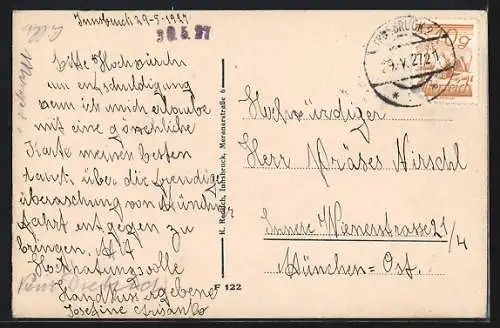 Innsbruck 29-5-1927
30.5.27
Bitte Hochwürden
um entschuldigung
wenn ich mich erlaube
mit eine gewöhnliche
Karte meinen besten
Dank über die freudige
überaschung von München
fahrt entgegen zu
bringen. Mit
Hochachtungsvolle
Handkuss ergebene
Josefine
R. Redlich, Innsbruck, Meranerstraße 6
F 122
INNSBRUCK 2
29.V.27
Hochwürdiger
Herr Präses Hirschl
Innere Wienerstrasse 21/4
München=Ost.